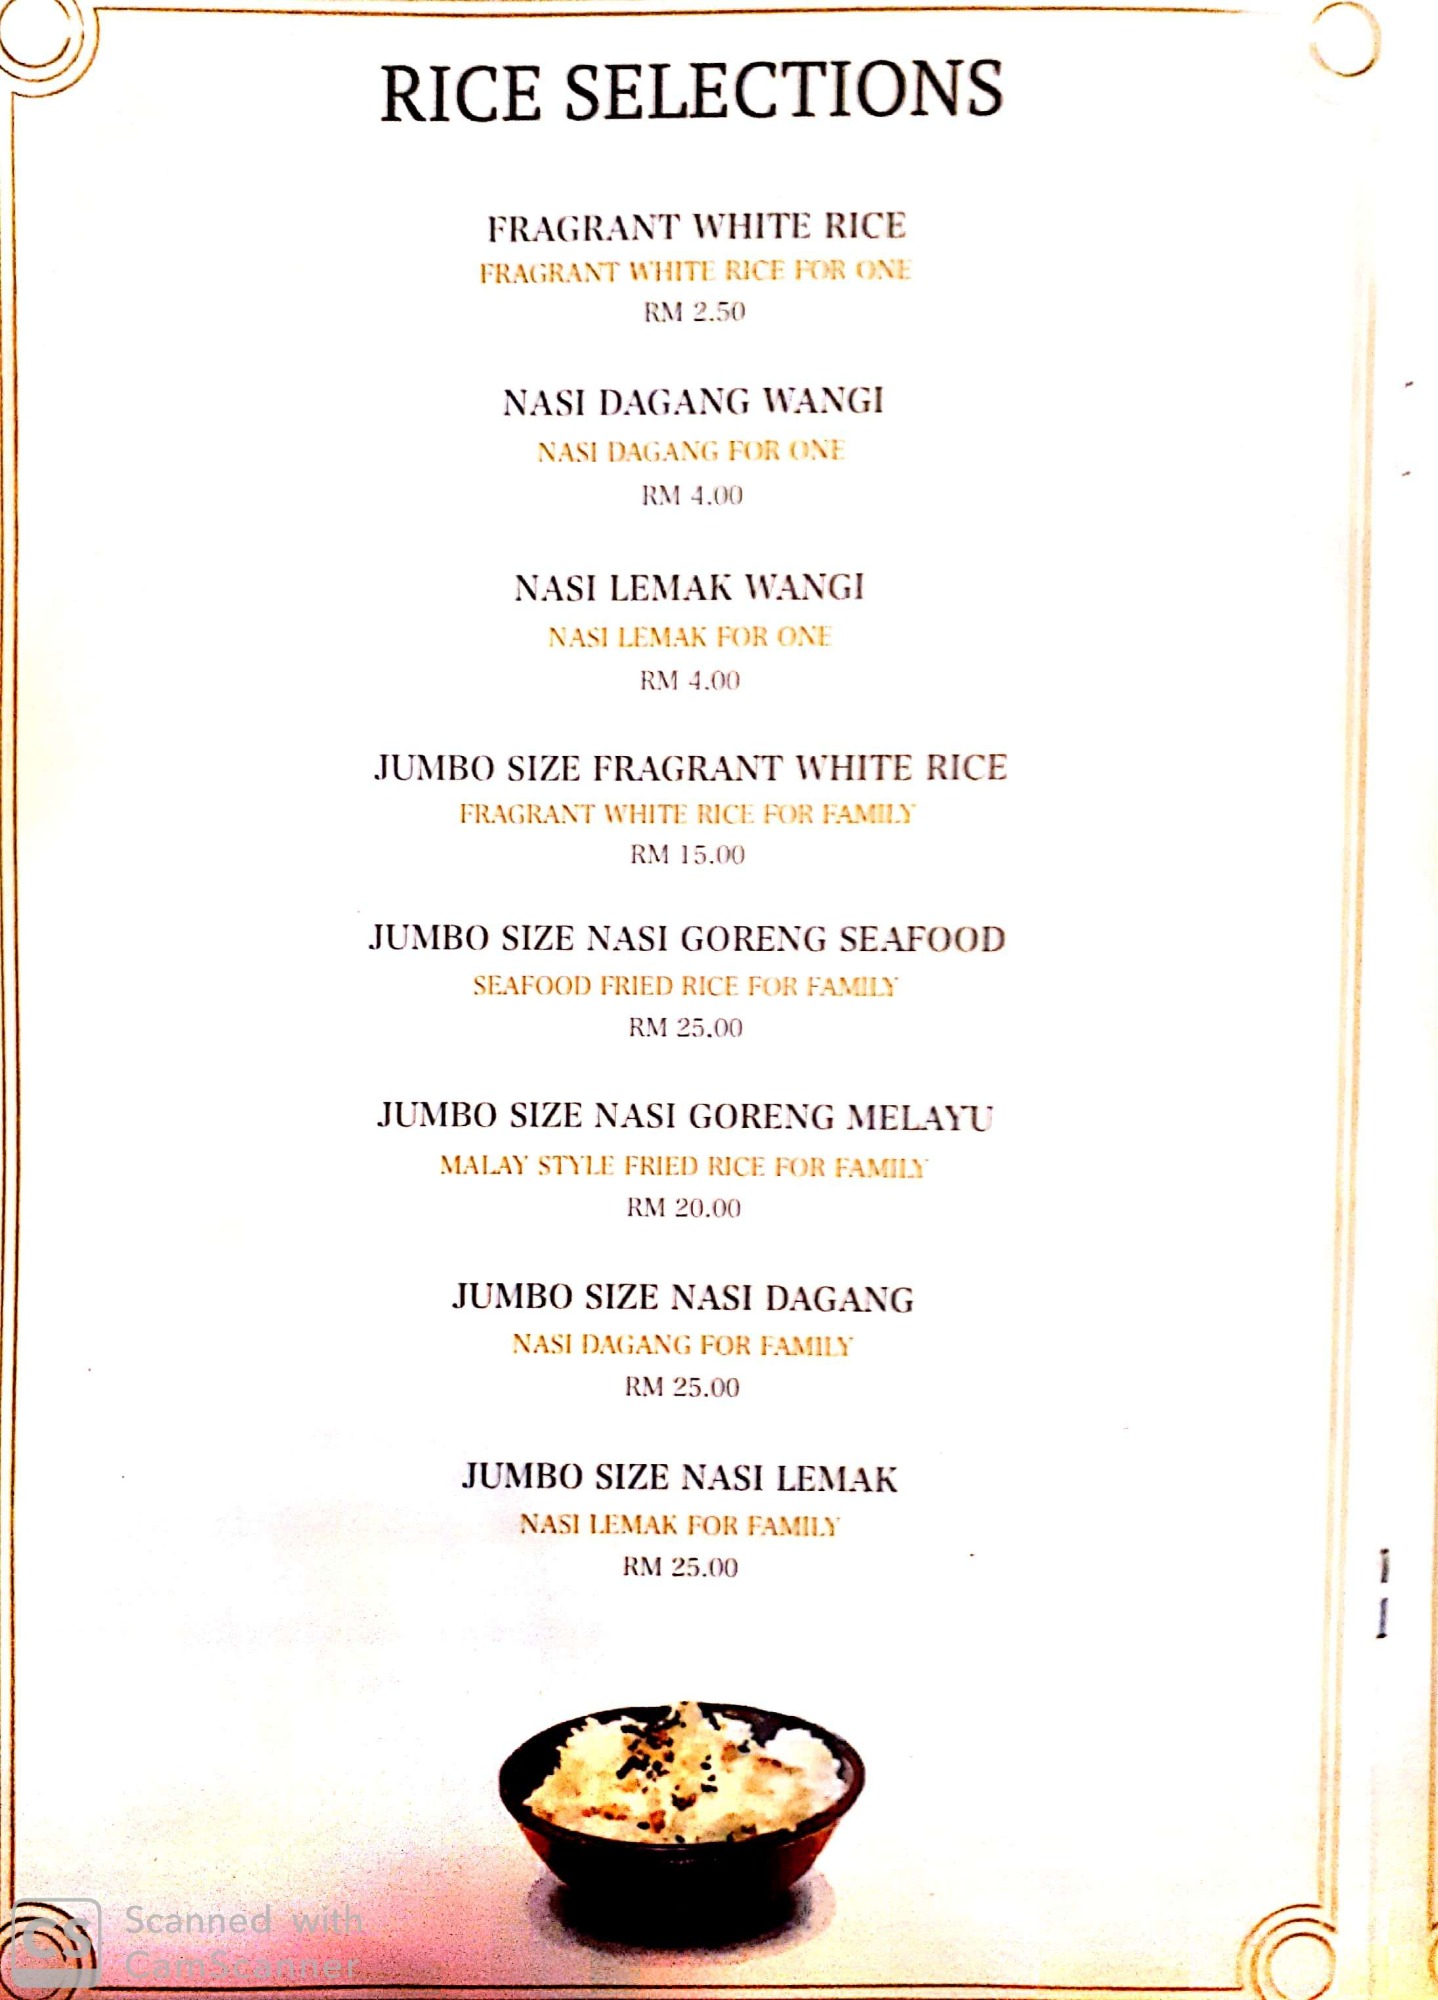 RICE SELECTIONS
FRAGRANT WHITE RICE
FRAGRANT WHITE RICE FOR ONE
RM 2.50
NASI DAGANG WANGI
NASI DAGANG FOR ONE
RM 4.00
NASI LEMAK WANGI
NASI LEMAK FOR ONE
RM 4.00
JUMBO SIZE FRAGRANT WHITE RICE
FRAGRANT WHITE RICE FOR FAMILY
RM 15.00
JUMBO SIZE NASI GORENG SEAFOOD
SEAFOOD FRIED RICE FOR FAMILY
RM 25.00
JUMBO SIZE NASI GORENG MELAYU
MALAY STYLE FRIED RICE FOR FAMILY
RM 20.00
JUMBO SIZE NASI DAGANG
NASI DAGANG FOR FAMILY
RM 25.00
JUMBO SIZE NASI LEMAK
NASI LEMAK FOR FAMILY
RM 25.00
CS Scanned with
CamScanner